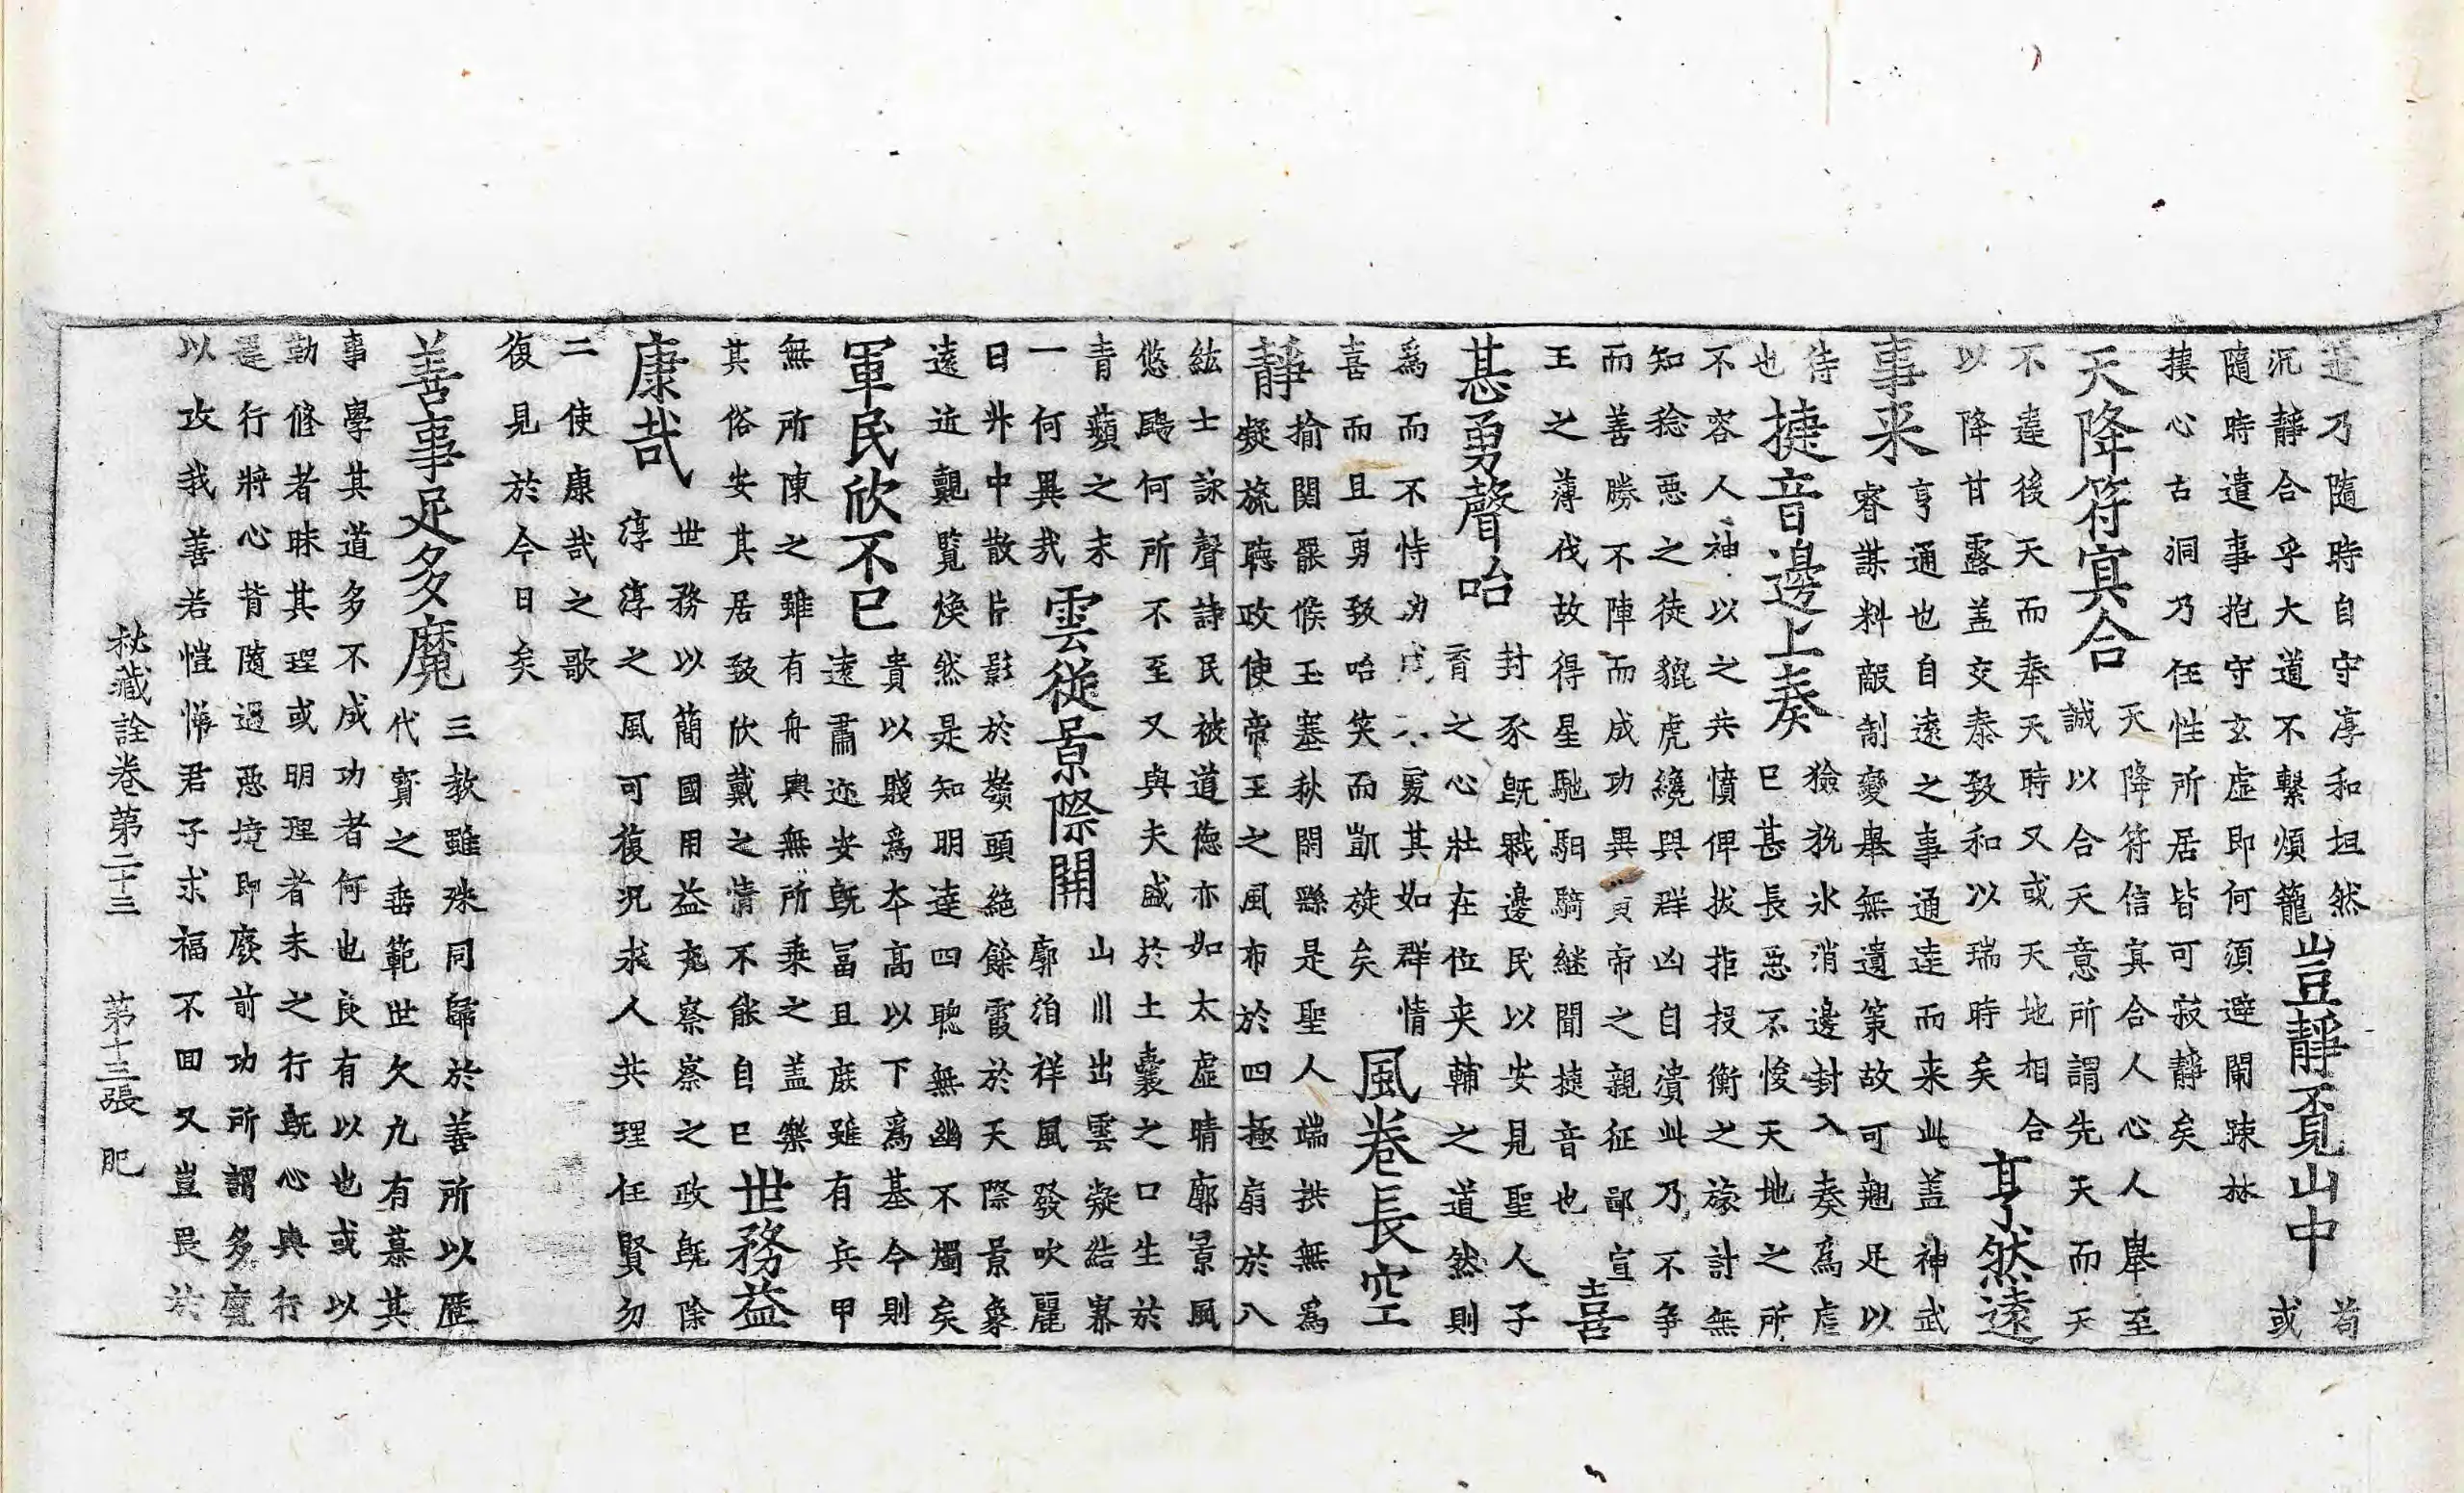 逌乃隨時自守淳和坦然
沉靜合乎大道不繫煩籠
豈靜覔山中
苟
或
隨時遣事抱守玄虛即何須避闌踈林
摟心古洞乃任性所居皆可寂靜矣
天降符㝠合
天降符信㝠合人心人舉至
誠以合天意所謂先天而天
不違後天而奉天時又或天地相合
以降甘露盖交泰致和以瑞時矣
亨然遠
事来
亨通也自遠之事通達而来此盖神武
睿謀料敵制變舉無遺策故可翹足以
待
也
捷音邊上奏
獫狁氷消邊封入奏為虐
巳甚長惡不悛天地之所
不容人神以之共憤俾拔拒投衡之旅計無
知稔惡之徒貔虎纔與群凶自潰此乃不爭
而善勝不陣而成功異帝之親征鄙宣
王之薄伐故得星馳馹騎継聞捷音也
喜
甚勇聲咍
封豕旣戮邊民以安見聖人子
育之心壯在位夾輔之道然則
為而不恃功成其如群情
喜而且勇致咍笑而凱旋矣
風卷長空
靜
揄関罷候玉塞秋閑繇是聖人端拱無為
凝旒聽政使帝王之風布於四極扇於八
紘士詠聲詩民被道德亦如太虛晴廓景風
悠颺何所不至又與夫盛於土囊之口生於
青蘋之末
一何異㦲
雲從景際開
山川出雲凝結寡
廓洎祥風發吹麗
日升中散片影於嶺頭絶餘霞於天際景象
遠近覩覽煥然是知明達四聰無幽不燭矣
軍民欣不已
貴以賤為本高以下為基今則
遠肅迩安旣冨且庶雖有兵甲
無所陳之雖有舟輿無所乗之盖樂
其俗安其居致欣戴之情不能自巳
世務益
康哉
世務以蕳國用益充察察之政旣除
淳淳之風可復况求人共理任賢勿
二使康哉之歌
復見於今日矣
善事足多魔
三教雖殊同歸於善所以歷
代寳之垂範世久凢有慕其
事學其道多不成功者何也良有以也或以
勤修者昧其理或明理者未之行旣心與行
違行將心背隨遇惡境即廢前功所謂多魔
以攻我善若愷悌君子求福不回又豈畏於
秘藏詮卷第二十三　第十三張　肥